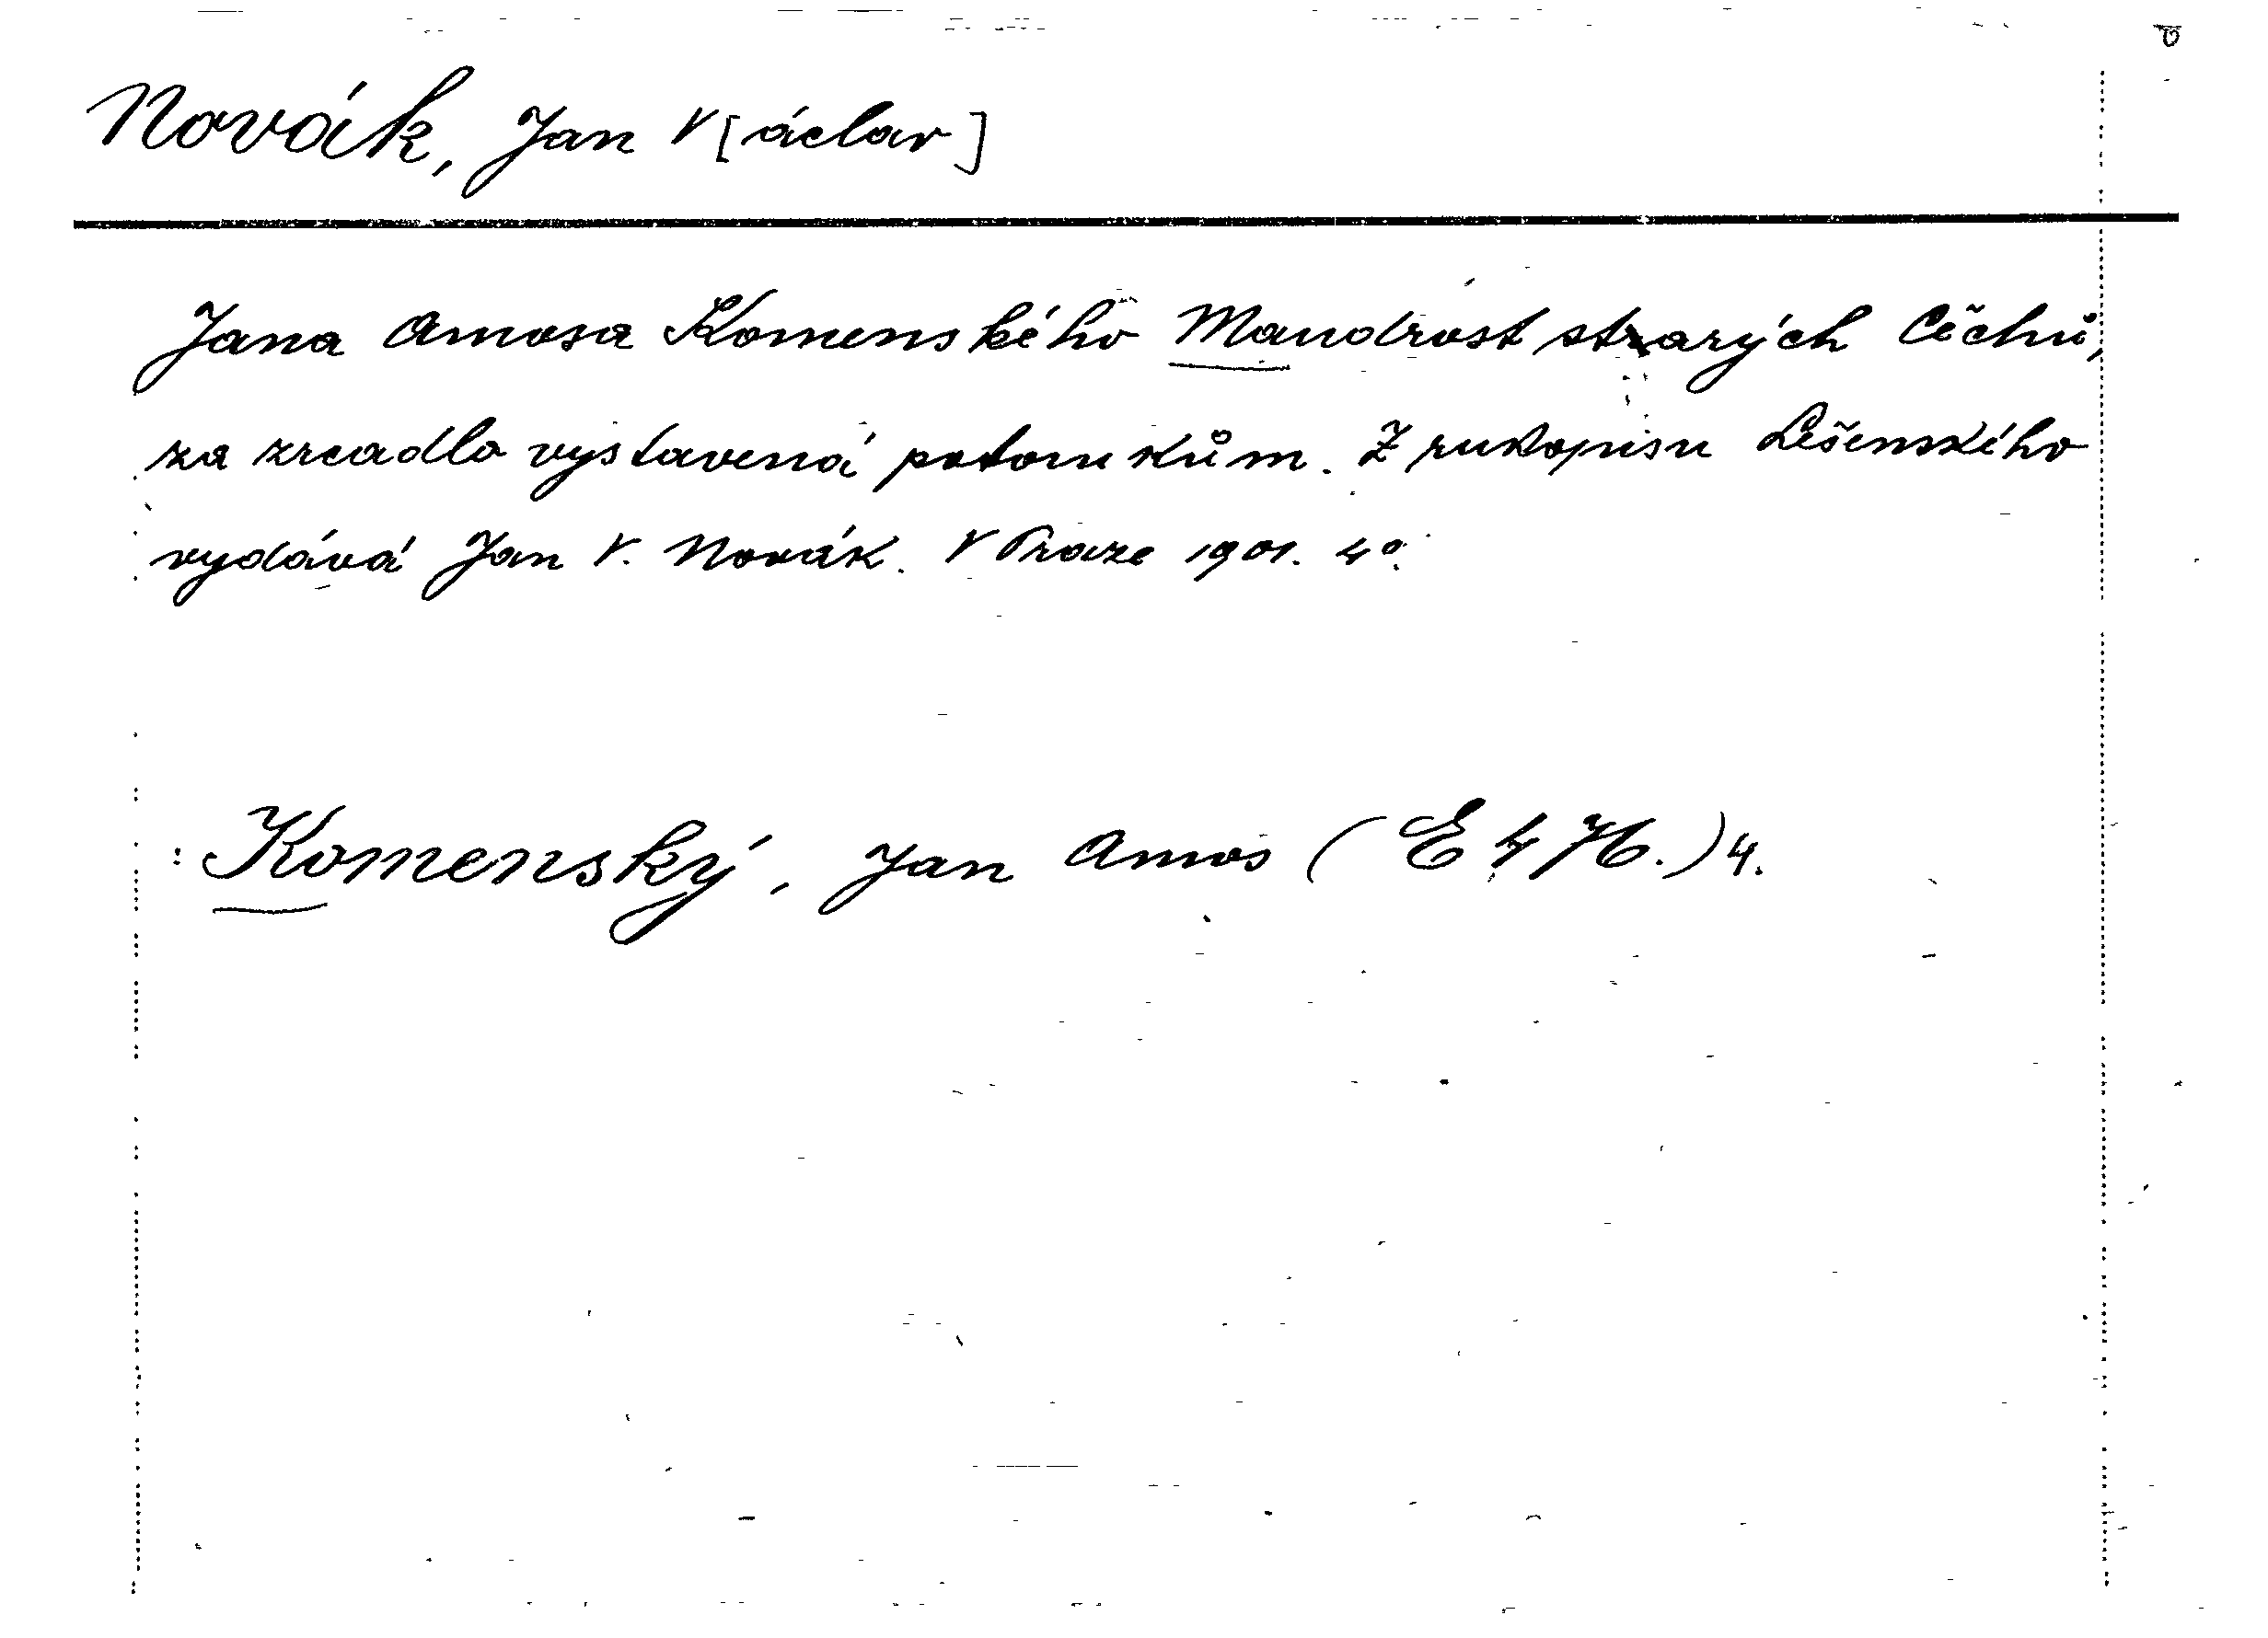 Novák, Jan V[áclav]
Jana Amosa Komenského Maudrost starých Čechů,
za zrcadlo vystavená potomkům. Z rukopisu Lešenského
vydává Jan V. Novák. V Praze 1901. 4°.
: Komenský, Jan Amos (E 4 H.) 4.